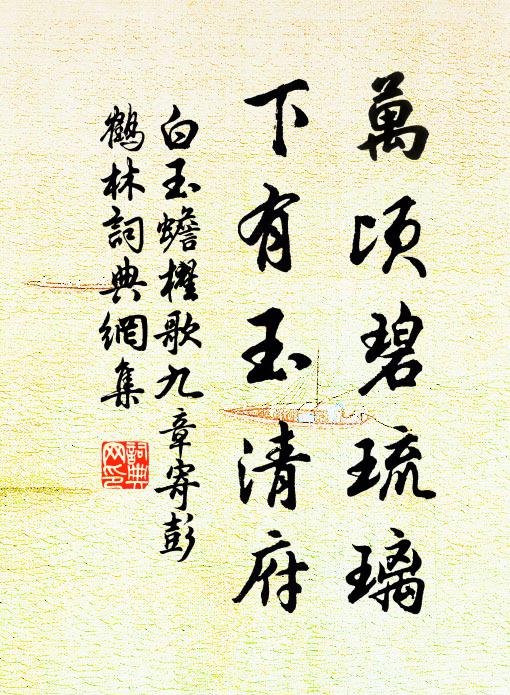 萬頃碧琉璃
下有玉清府
白玉蟾櫂歌九章寄彭
鶴林詞典網集
詞典
网印